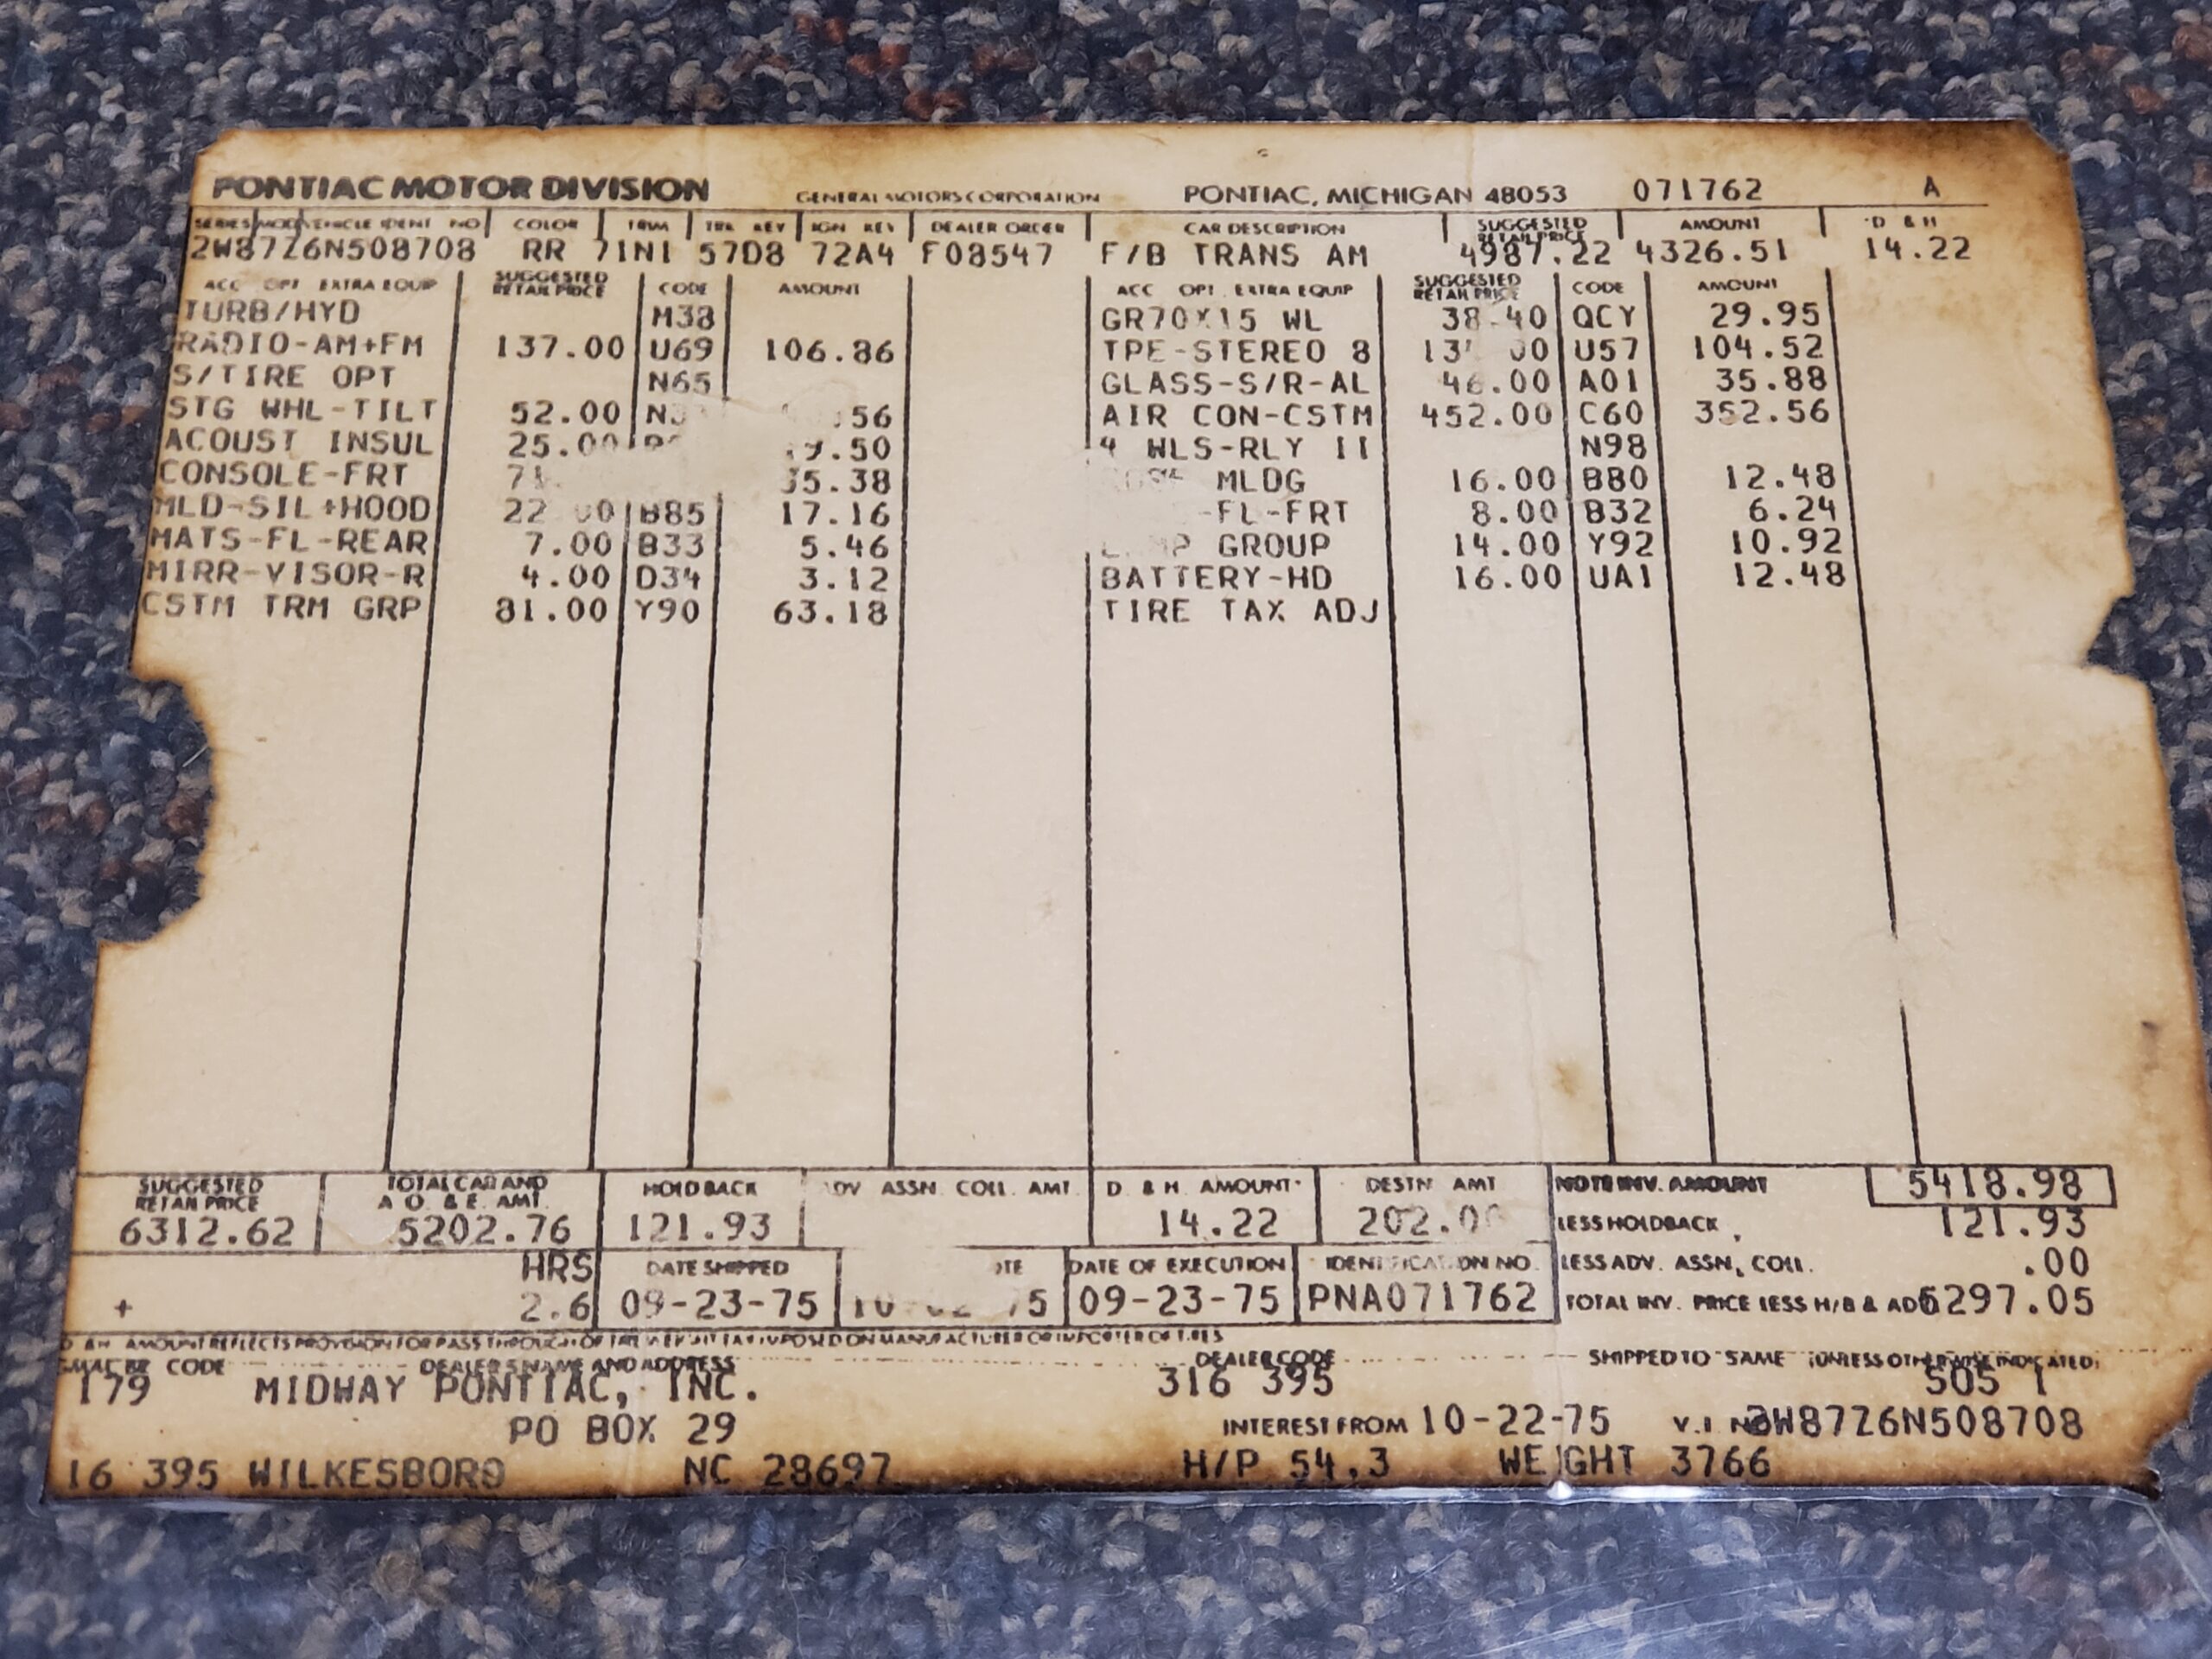 PONTIAC MOTOR DIVISION GENERAL MOTORS CORPORATION PONTIAC, MICHIGAN 48053 071762 A
SERIES MOD VEHICLE IDENT NO COLOR TRIM TRK KEY IGN KEY DEALER ORDER CAR DESCRIPTION SUGGESTED RETAIL PRICE AMOUNT D & H
2W87Z6N508708 RR 71N1 57D8 72A4 F08547 F/B TRANS AM 4987.22 4326.51 14.22
ACC OPT EXTRA EQUIP SUGGESTED RETAIL PRICE CODE AMOUNT ACC OPT EXTRA EQUIP SUGGESTED RETAIL PRICE CODE AMOUNT
TURB/HYD M38 GR70X15 WL 38.40 QCY 29.95
RADIO-AM+FM 137.00 U69 106.86 TPE-STEREO 8 U57 104.52
S/TIRE OPT N65 GLASS-S/R-AL 46.00 A01 35.88
STG WHL-TILT 52.00 AIR CON-CSTM 452.00 C60 352.56
ACOUST INSUL 25.00 4 WLS-RLY II N98
CONSOLE-FRT MLDG 16.00 B80 12.48
MLD-SIL+HOOD 22.00 B85 17.16 -FL-FRT 8.00 B32 6.24
MATS-FL-REAR 7.00 B33 5.46 GROUP 14.00 Y92 10.92
MIRR-VISOR-R 4.00 D34 3.12 BATTERY-HD 16.00 UA1 12.48
CSTM TRM GRP 81.00 Y90 63.18 TIRE TAX ADJ
SUGGESTED RETAIL PRICE TOTAL CAR AND A O. & E. AMT. HOLDBACK ADV ASSN. COLL. AMT. D & H AMOUNT DESTN AMT NOTE INV. AMOUNT 5418.98
6312.62 5202.76 121.93 14.22 LESS HOLDBACK 121.93
HRS DATE SHIPPED DATE OF EXECUTION IDENTIFICATION NO. LESS ADV. ASSN, COLL. .00
+ 2.6 09-23-75 09-23-75 PNA071762 TOTAL INV. PRICE LESS H/B & ADV 5297.05
D & H AMOUNT REFLECTS PROVISION FOR PASS THROUGH OF THE WEIGHT TAX IMPOSED ON MANUFACTURER OR IMPORTER OF TIRES
GMAC BR CODE DEALER'S NAME AND ADDRESS DEALER CODE SHIPPED TO SAME (UNLESS OTHERWISE INDICATED)
179 MIDWAY PONTIAC, INC. 316 395 505 1
PO BOX 29 INTEREST FROM 10-22-75 V.I NO 2W87Z6N508708
16 395 WILKESBORO NC 28697 H/P 54.3 WEIGHT 3766